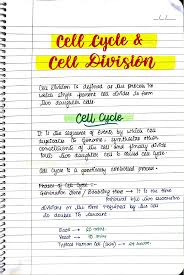 Cell Cycle &
Cell Division
Cell Division is defined as the process in
which single parent cell divides to form
two daughter cells.
Cell Cycle
It is the sequence of events by which cell
duplicates its genome, synthesizes other
constituents of the cell and finally divide
into two daughter cell is called cell cycle.
Cell Cycle is a genetically controlled process.
Phases of Cell Cycle :-
Generation Time / Doubling time → It is the time
interval b/w two successive
divisions or the time required by the cell
to double its amount.
Yeast → 90 mins
Typical Human Cell → 24 hours